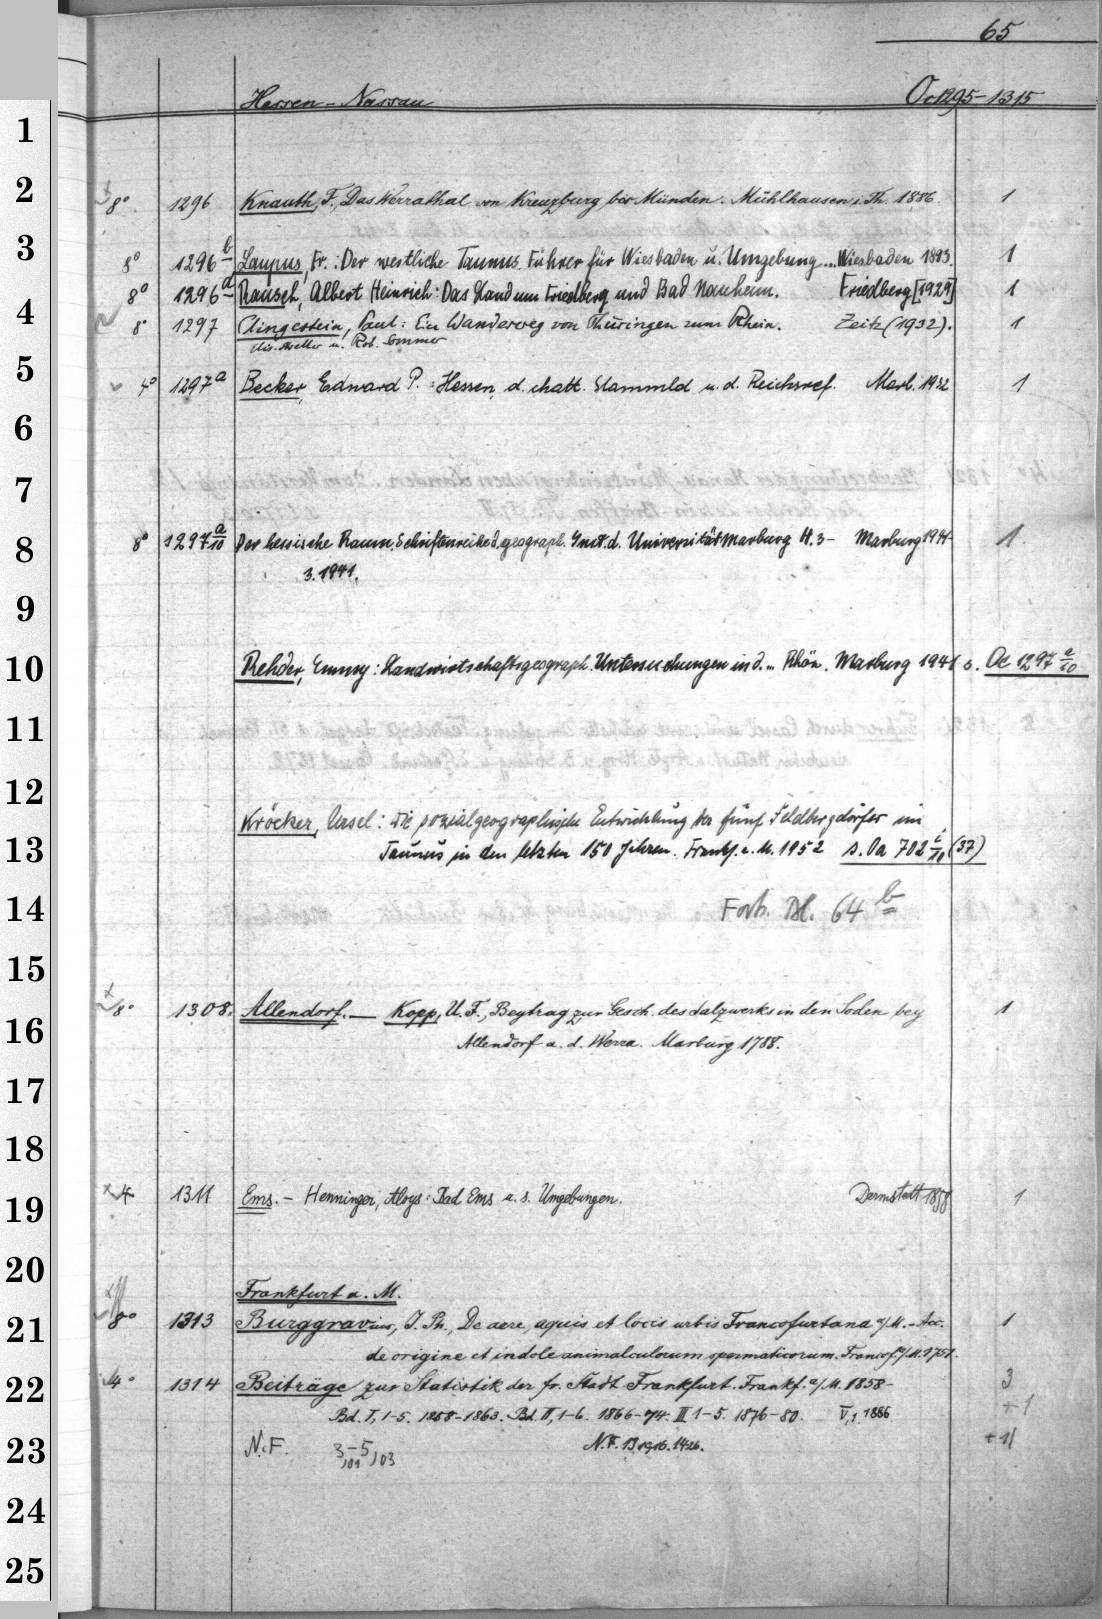 65
Hessen-Nassau Oc 1295-1315
8° 1296 Knauth, F., Das Werrathal von Kreuzburg bis Münden. Mühlhausen i. Th. 1886. 1
8° 1296 b Laupus, Fr.: Der westliche Taunus. Führer für Wiesbaden u. Umgebung... Wiesbaden 1893. 1
8° 1296 d Rausch, Albert Heinrich: Das Land um Friedberg und Bad Nauheim. Friedberg [1924] 1
8° 1297 Klingestein, Paul: Ein Wanderweg von Thüringen zum Rhein. Zeitz (1932). 1
u. Rob. Sommer
4° 1297 a Becker, Edward P.: Hessen, d. chatt. Stammld u. d. Reichsref. Marb. 1932 1
8° 1297 a/10 Der hessische Raum. Schriftenreihe d. geograph. Inst. d. Universität Marburg H. 3- Marburg 1941- 1
3. 1941.
Rehder, Emmy: Landwirtschaftsgeograph. Untersuchungen in d... Rhön. Marburg 1941 s. Oc 1297 a/10
Kröcker, Ursel: Die sozialgeographische Entwicklung der fünf Feldbergdörfer im
Taunus in den letzten 150 Jahren. Frankf. a. M. 1952 s. Oa 702 c/10 (37)
Forts. Bl. 64 b
8° 1308. Allendorf. — Kopp, U. F., Beytrag zur Gesch. des Salzwerks in den Soden bey 1
Allendorf a. d. Werra. Marburg 1788.
4 1311 Ems. - Henninger, Aloys: Bad Ems u. s. Umgebungen. Darmstadt 1858 1
Frankfurt a. M.
8° 1313 Burggravius, J. Ph., De aere, aquis et locis urbis Francofurtana a/M. - Acc. 1
de origine et indole animalculorum spermaticorum. Francof. a/M. 1751.
4° 1314 Beiträge zur Statistik der fr. Stadt Frankfurt. Frankf. a/M. 1858- 3
Bd. I, 1-5. 1858-1863. Bd. II, 1-6. 1866-74. III 1-5. 1876-80. V, 1. 1886 +1
N. F. 3-5 N. F. 13. 1926. +1